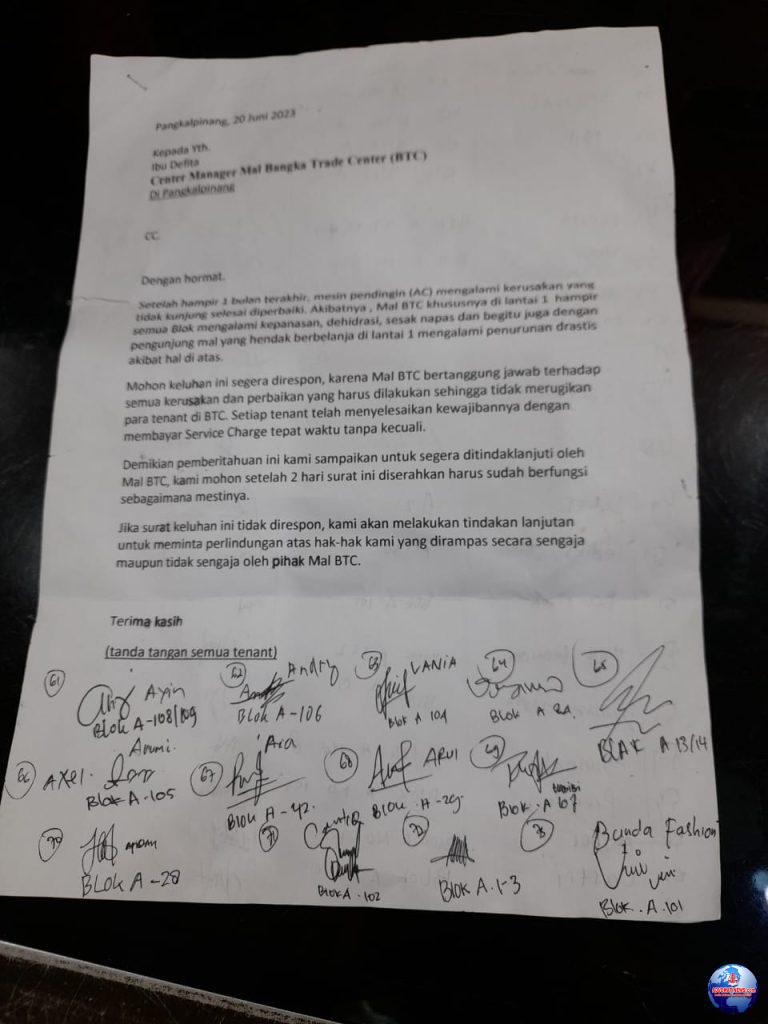 Pangkalpinang, 20 Juni 2023
Kepada Yth.
Ibu Defita
Center Manager Mal Bangka Trade Center (BTC)
Di Pangkalpinang
CC.
Dengan hormat.
Setelah hampir 1 bulan terakhir, mesin pendingin (AC) mengalami kerusakan yang
tidak kunjung selesai diperbaiki. Akibatnya , Mal BTC khususnya di lantai 1 hampir
semua Blok mengalami kepanasan, dehidrasi, sesak napas dan begitu juga dengan
pengunjung mal yang hendak berbelanja di lantai 1 mengalami penurunan drastis
akibat hal di atas.
Mohon keluhan ini segera direspon, karena Mal BTC bertanggung jawab terhadap
semua kerusakan dan perbaikan yang harus dilakukan sehingga tidak merugikan
para tenant di BTC. Setiap tenant telah menyelesaikan kewajibannya dengan
membayar Service Charge tepat waktu tanpa kecuali.
Demikian pemberitahuan ini kami sampaikan untuk segera ditindaklanjuti oleh
Mal BTC, kami mohon setelah 2 hari surat ini diserahkan harus sudah berfungsi
sebagaimana mestinya.
Jika surat keluhan ini tidak direspon, kami akan melakukan tindakan lanjutan
untuk meminta perlindungan atas hak-hak kami yang dirampas secara sengaja
maupun tidak sengaja oleh pihak Mal BTC.
Terima kasih
(tanda tangan semua tenant)
61 Ayin 62 Andry 63 VANIA 64 65
Blok A-108/109 Blok A-106 Blok A 104 Blok A BLAK A 13/14
66 AXEL. Arumi. 67 Ara 68 ARUI 69
Blok A-105 Blok A-42. Blok A-29 Blok A 107
70 71 72 73 Bunda Fashion
BLOK A-28 Blok A-102 Blok A.1-3 Blok. A.101